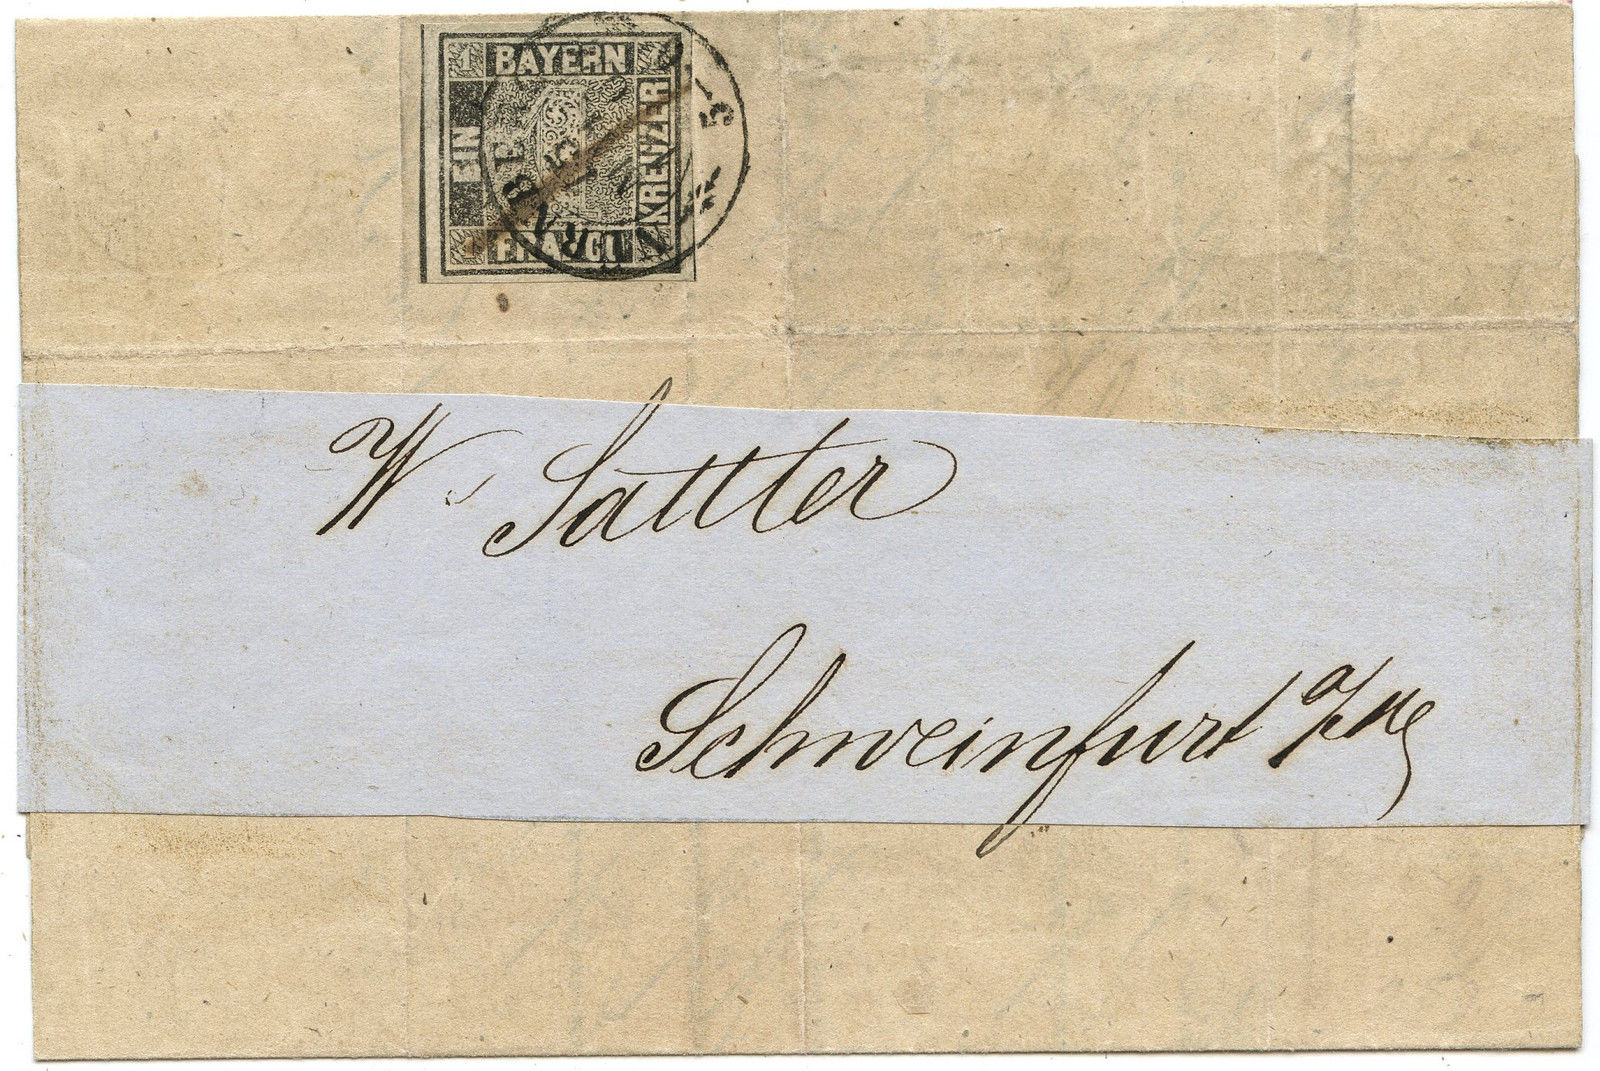 1 BAYERN 1
EIN
KREUZER
1 FRANCO
W. Sattler
Schweinfurt